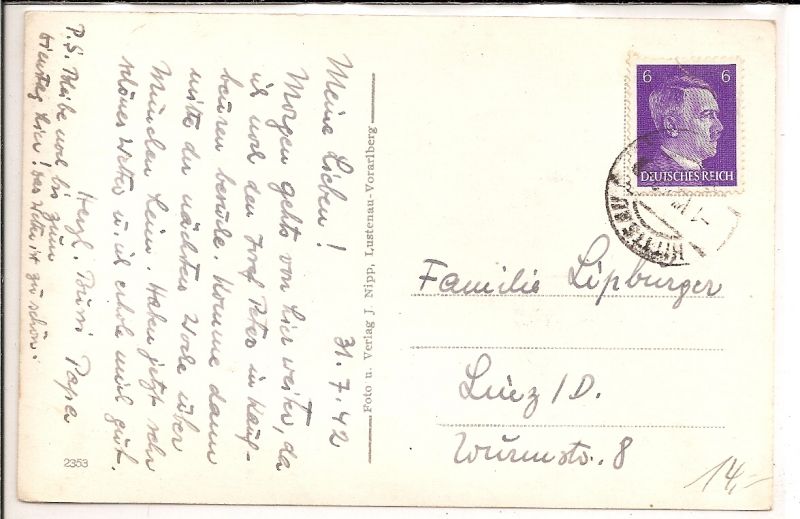 Meine Lieben! 31.7.42
Morgen gehts von hier weiter, da
ich noch den Josef Peter in Kauf-
beuren besuche. Komme dann
mitte der nächsten Woche über
München heim. Haben jetzt sehr
schönes Wetter u. ich erhole mich gut.
Herzl. Bussi Papa
P.S. Bleibe noch bis zum
Dienstag hier! Das Wetter ist zu schön!
2353
Foto u. Verlag J. Nipp, Lustenau-Vorarlberg
6 6
DEUTSCHES REICH
Familie Lipburger
Linz/D.
Wurmstr. 8
14,-